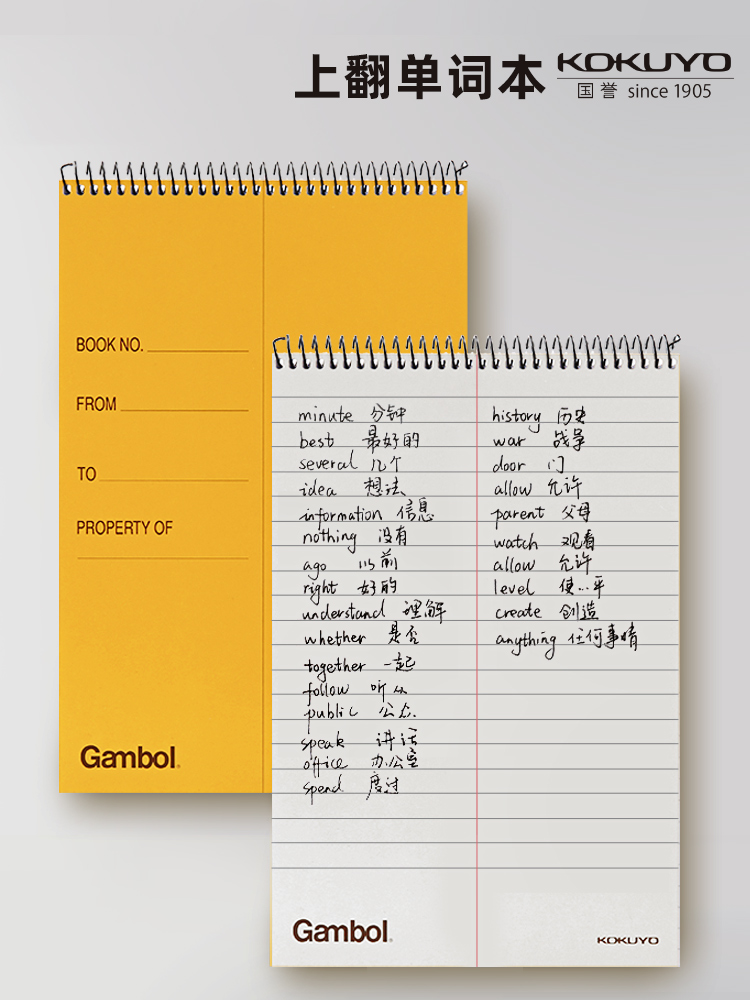 上翻单词本 KOKUYO
国誉 since 1905
BOOK NO.
FROM
TO
PROPERTY OF
Gambol
minute 分钟
best 最好的
several 几个
idea 想法
information 信息
nothing 没有
ago 以前
right 好的
understand 理解
whether 是否
together 一起
follow 听从
public 公众
speak 讲话
office 办公室
spend 度过
history 历史
war 战争
door 门
allow 允许
parent 父母
watch 观看
allow 允许
level 使…平
create 创造
anything 任何事情
Gambol
KOKUYO